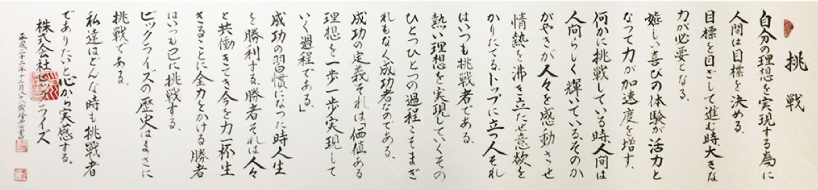 挑戦
自分の理想を実現する為に
人間は目標を決める。
目標を目ざして進む時大きな
力が必要となる。
嬉しい喜びの体験が活力と
なって力が加速度を増す、
何かに挑戦している時、人間は
人間らしく輝いている、そのか
がやきが人々を感動させ
情熱を沸き立たせ意欲を
かりたてる、トップに立つ人それ
はいつも挑戦者である。
熱い理想を実現していくその
ひとつひとつの過程こそまぎ
れもなく成功者なのである、
成功の定義それは「価値ある
理想を一歩一歩実現して
いく過程である。」
成功の習慣になった時人生
を勝利する、勝者それは人々
と共働きこそ今を力一杯生
きることに全力をかける勝者
はいつも己に挑戦する。
ビックライズの歴史はまさに
挑戦である、
私達はどんな時も挑戦者
でありたいと心から実感する。
株式会社ビックライズ
平成二十二年十二月